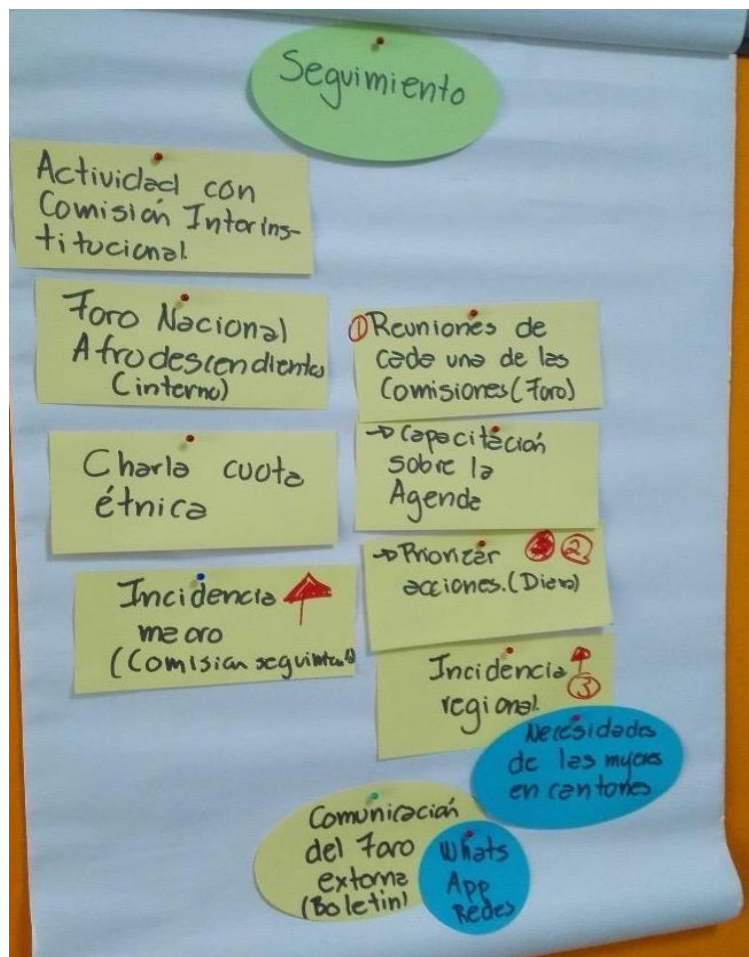 Seguimiento
Actividad con
Comisión Interins-
titucional.
Foro Nacional
Afrodescendientes
(interno)
Charla cuota
étnica
Incidencia
macro
(Comisión
① Reuniones de
cada una de las
Comisiones (Foro)
→ Capacitación
sobre la
Agenda
→ Priorizar ②
acciones.
Incidencia
regional. ③
Necesidades
de las mujeres
en cantones
Comunicación
del Foro
externa
(Boletin)
Whats
App
Redes